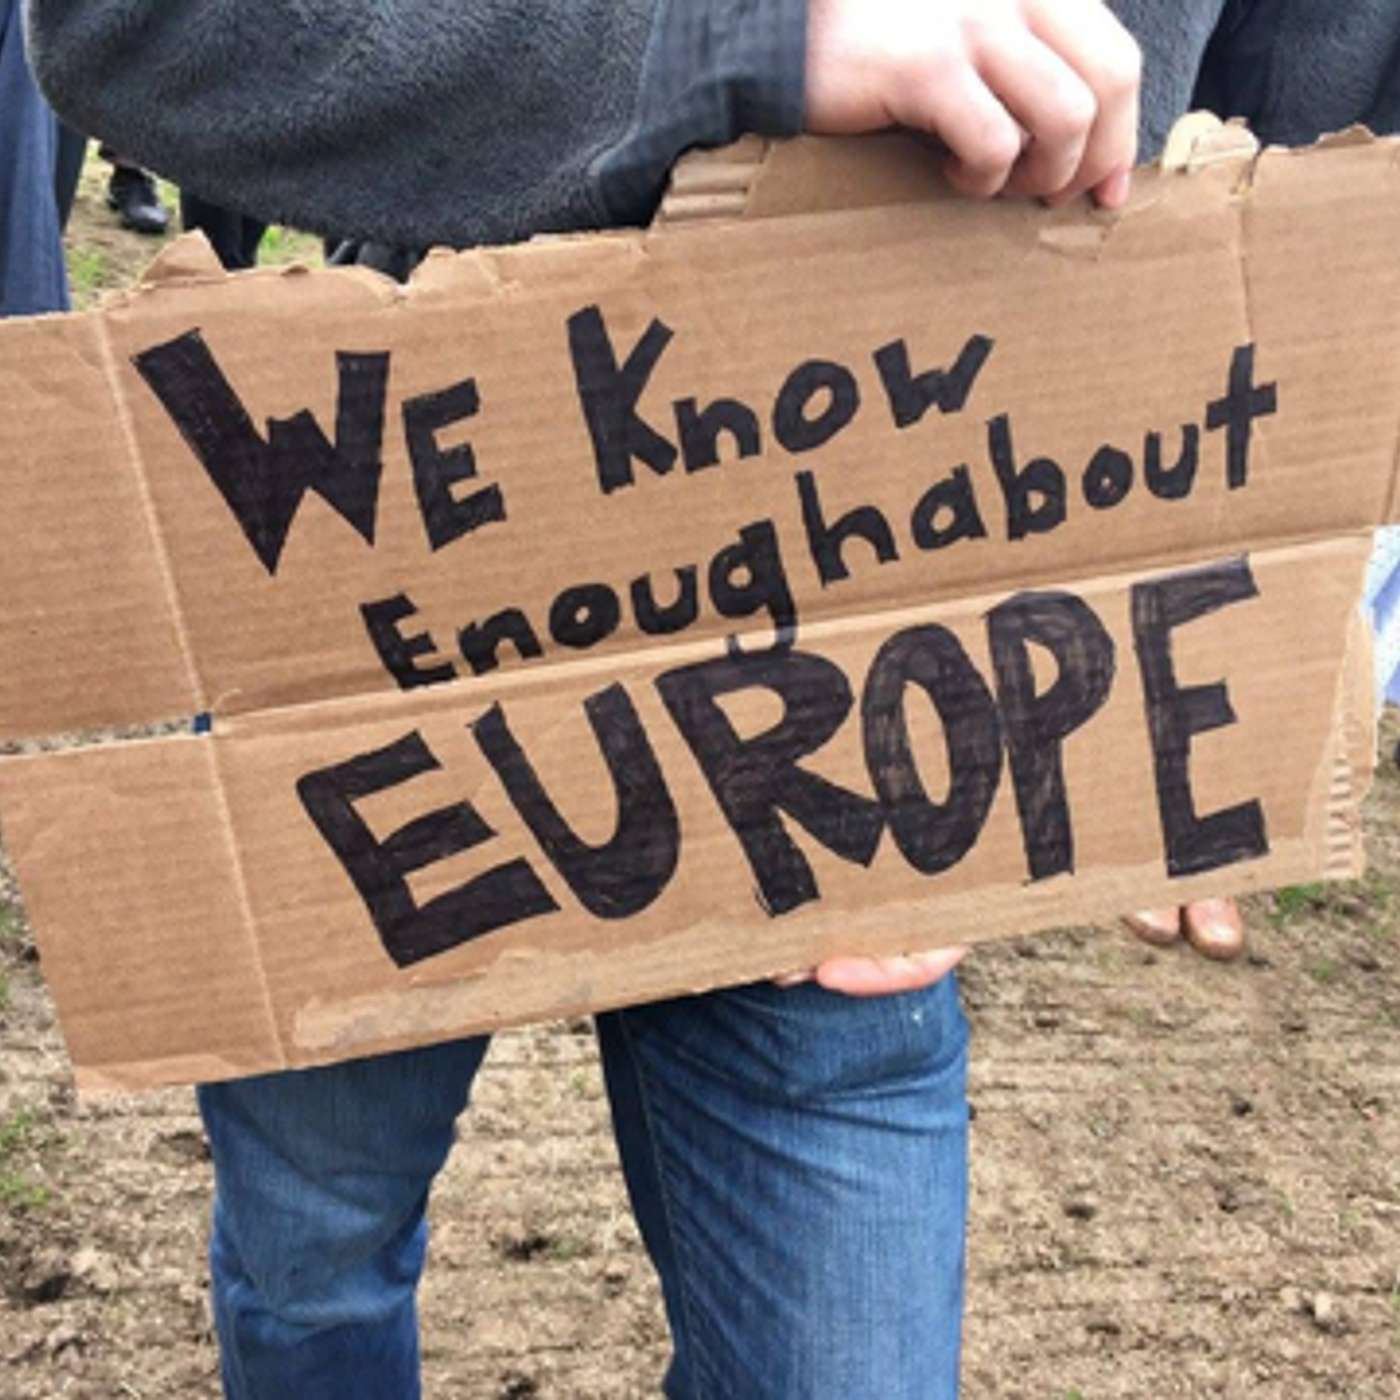 WE Know
Enough about
EUROPE